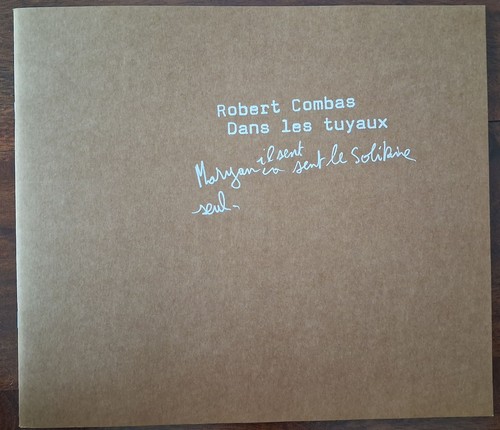 Robert Combas
Dans les tuyaux
il sent
Maryan sent le Solitine
seul.